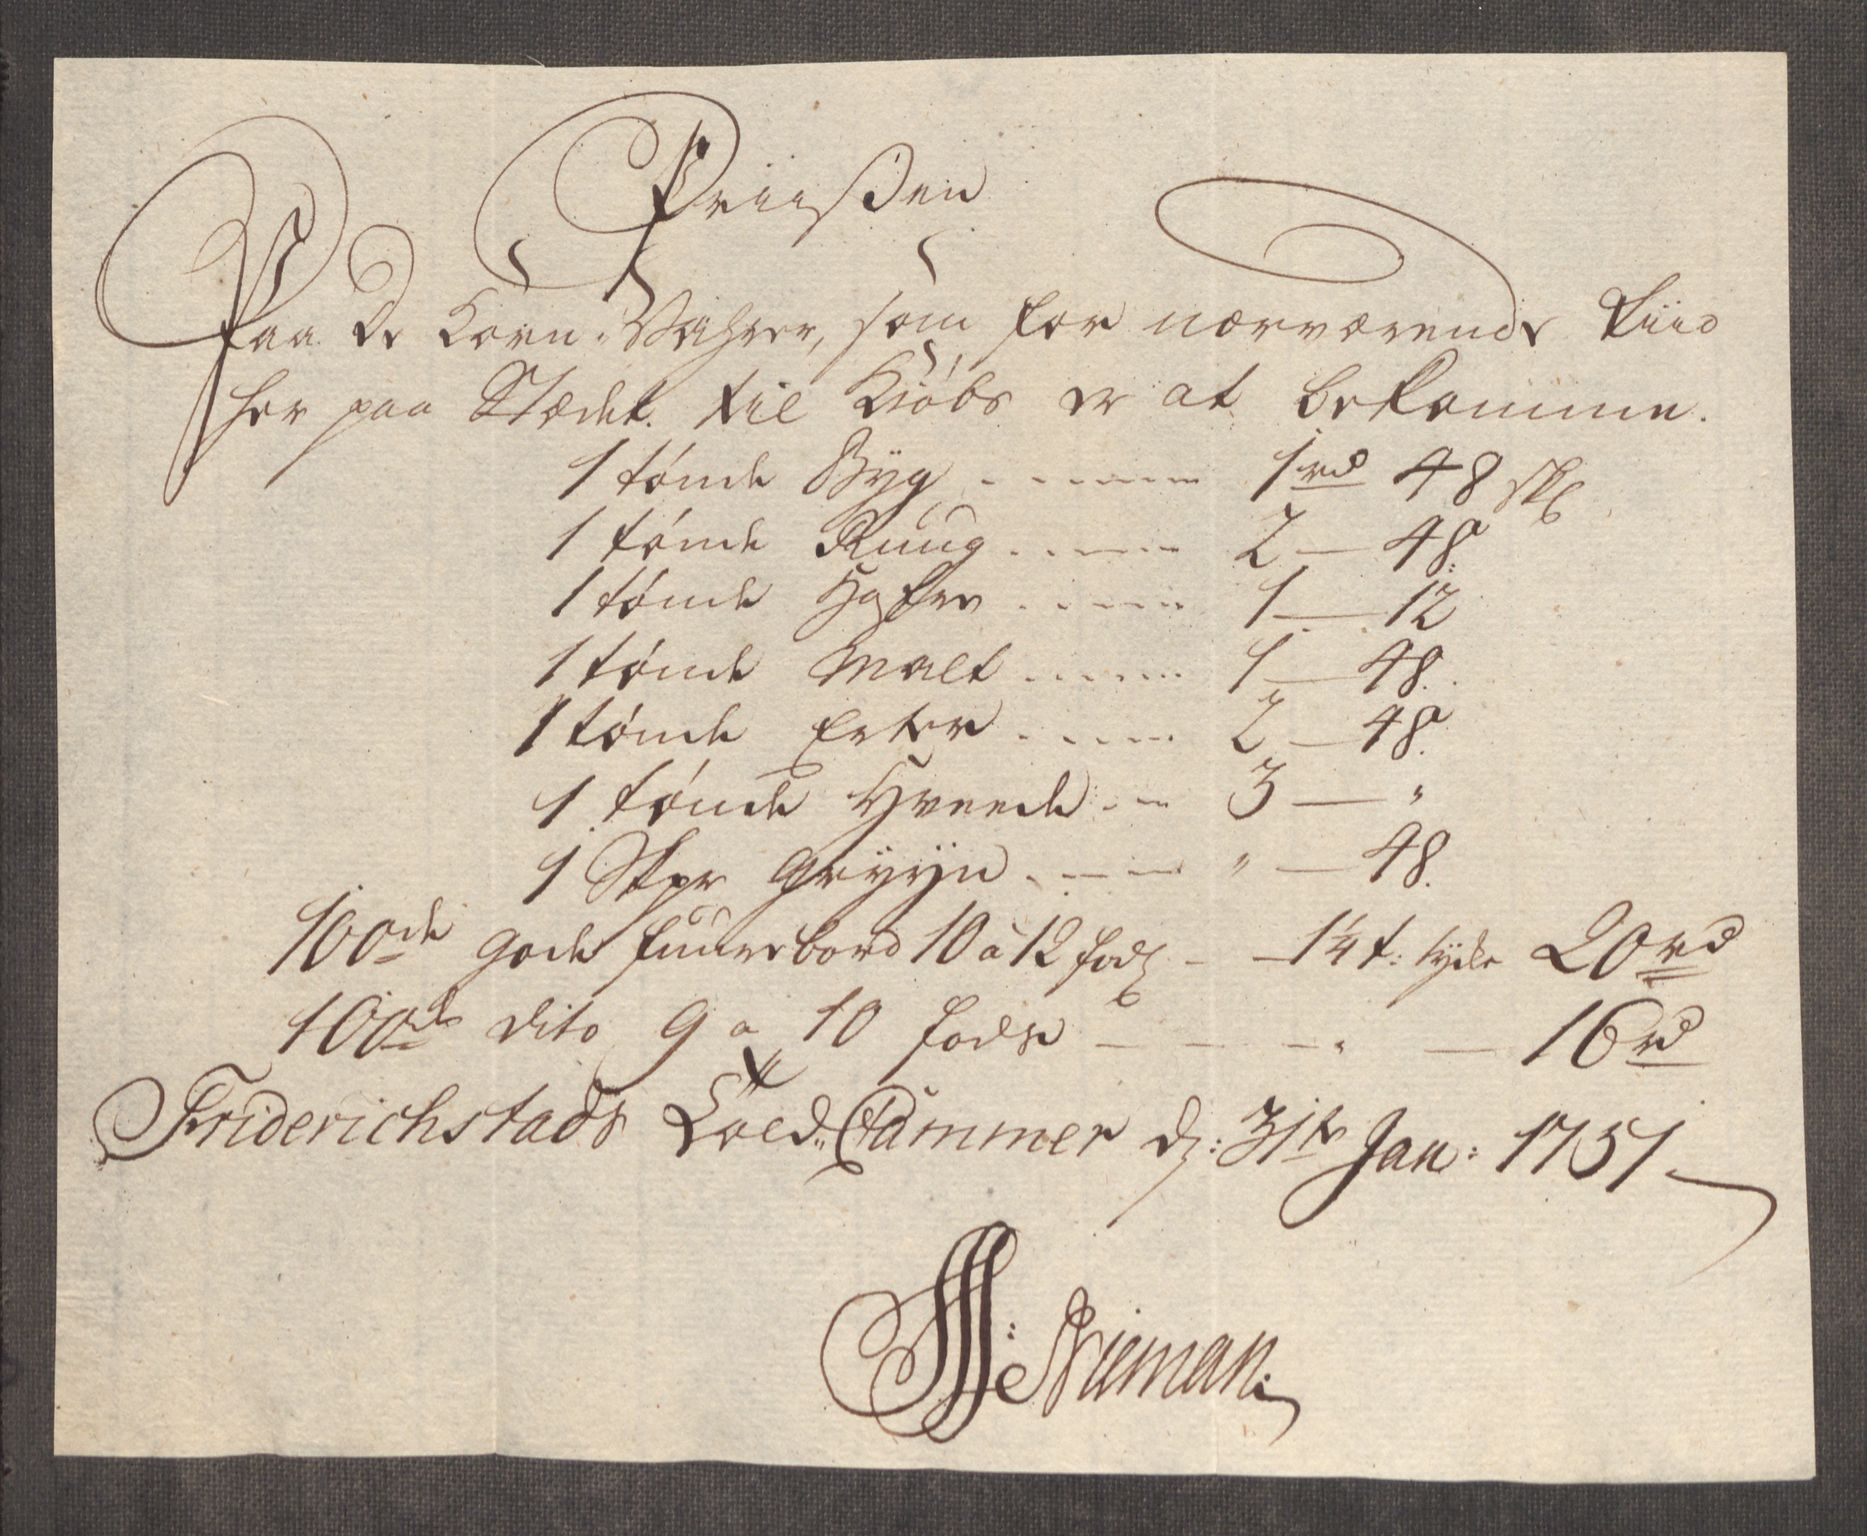 Priisen
Paa de Korn-Vahrer, som for nærværende Tiid
her paa Stædet til Kiøbs er at bekomme.
1 tønde Byg ------ 1 rd 48 sk
1 tønde Ruug ------ 2 — 48
1 tønde Hafre ------ 1 — 12
1 tønde Malt ------ 1 — 48.
1 tønde Erter ------ 2 — 48
1 tønde Hveede --- 3 — "
1 Skpr Gryyn ----- " — 48.
100de gode fuurebord 10 a 12 fods - — 1¼ t: tyke 20 rd
100de dito 9 a 10 fods — — — " — 16 rd
Friderichstads Told-Cammer d: 31te Jan: 1751
Nieman